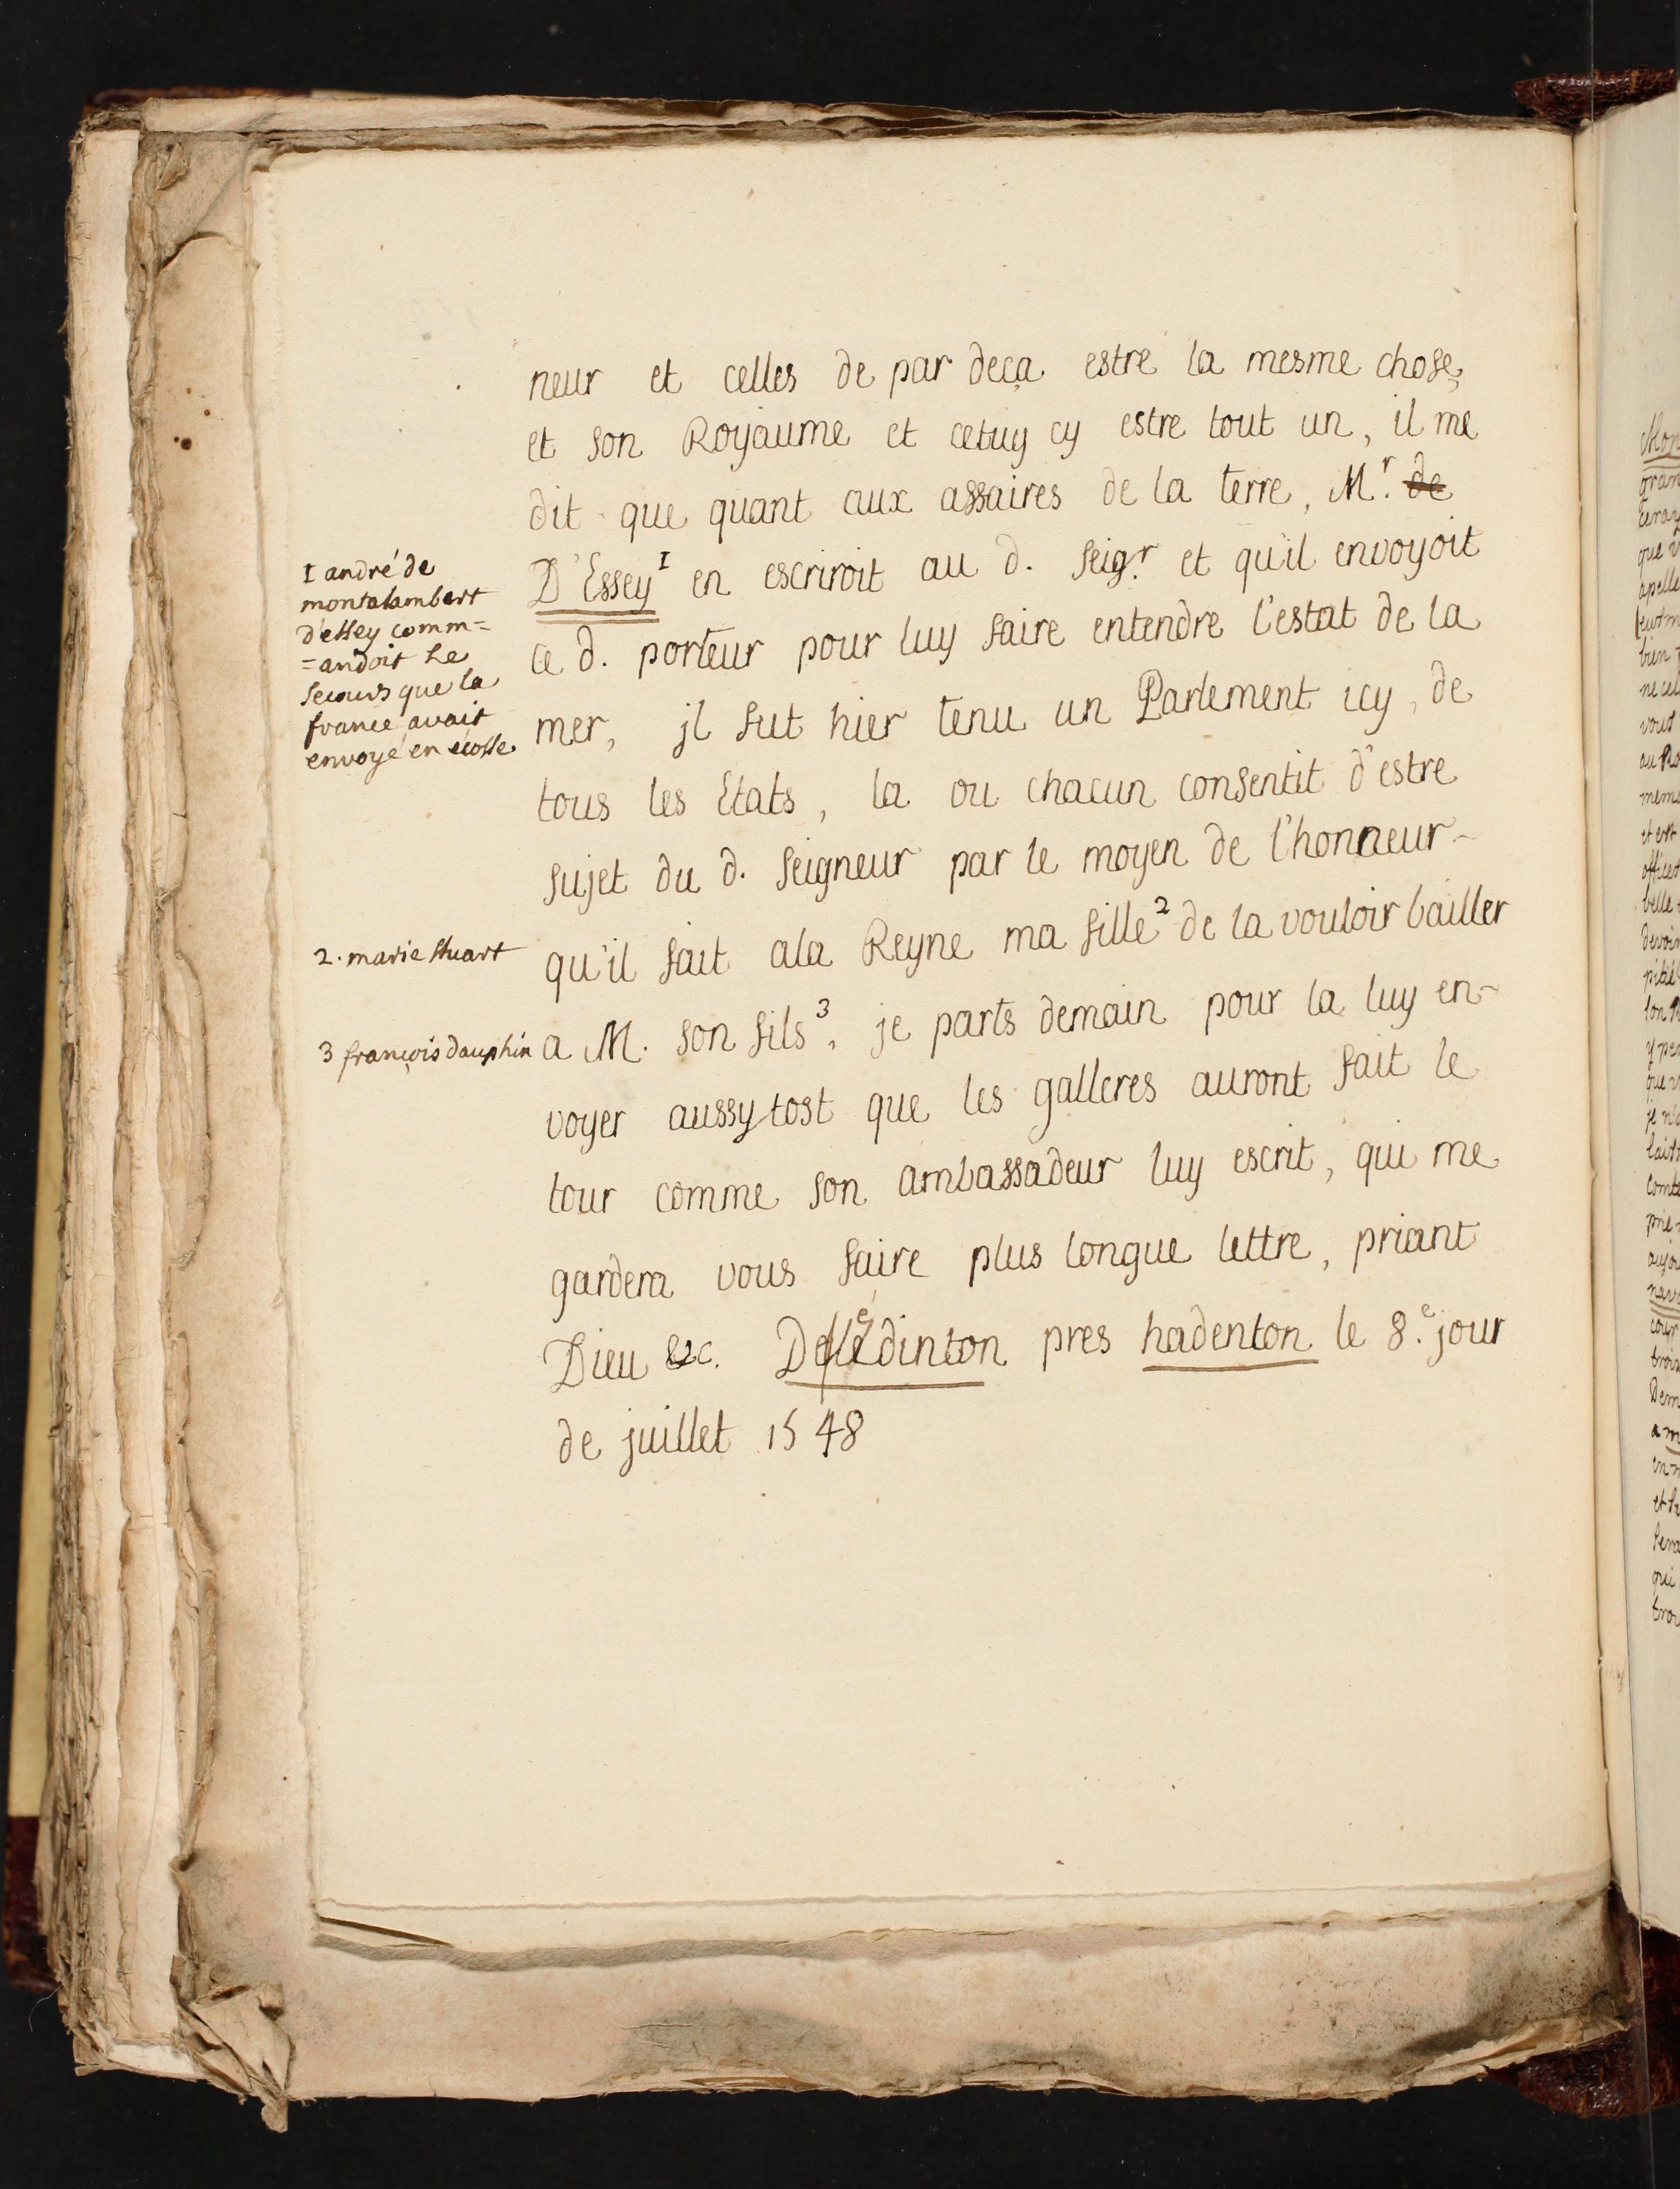 neur et celles de par deça estre la mesme chose,
et son Royaume et cetuy cy estre tout un, il me
dit que quant aux affaires de la terre, M.r de
D'Essey 1 en escriroit au d. seig.r et qu'il envoyoit
ce d. porteur pour luy faire entendre l'estat de la
mer, jl fut hier tenu un Parlement icy, de
tous les Etats, la ou chacun consentit d'estre
sujet du d. seigneur par le moyen de l'honneur
qu'il fait ala Reyne ma fille 2 de la vouloir bailler
a M. son fils 3, je parts demain pour la luy en-
voyer aussytost que les galleres auront fait le
tour comme son ambassadeur luy escrit, qui me
gardera vous faire plus longue lettre, priant
Dieu &c. dinton pres hadenton le 8.e jour
de juillet 1548
1 andré de
montalambert
d'essey comm=
=andoit le
secours que la
france avait
envoyé en écosse
2. marie stuart
3 françois dauphin